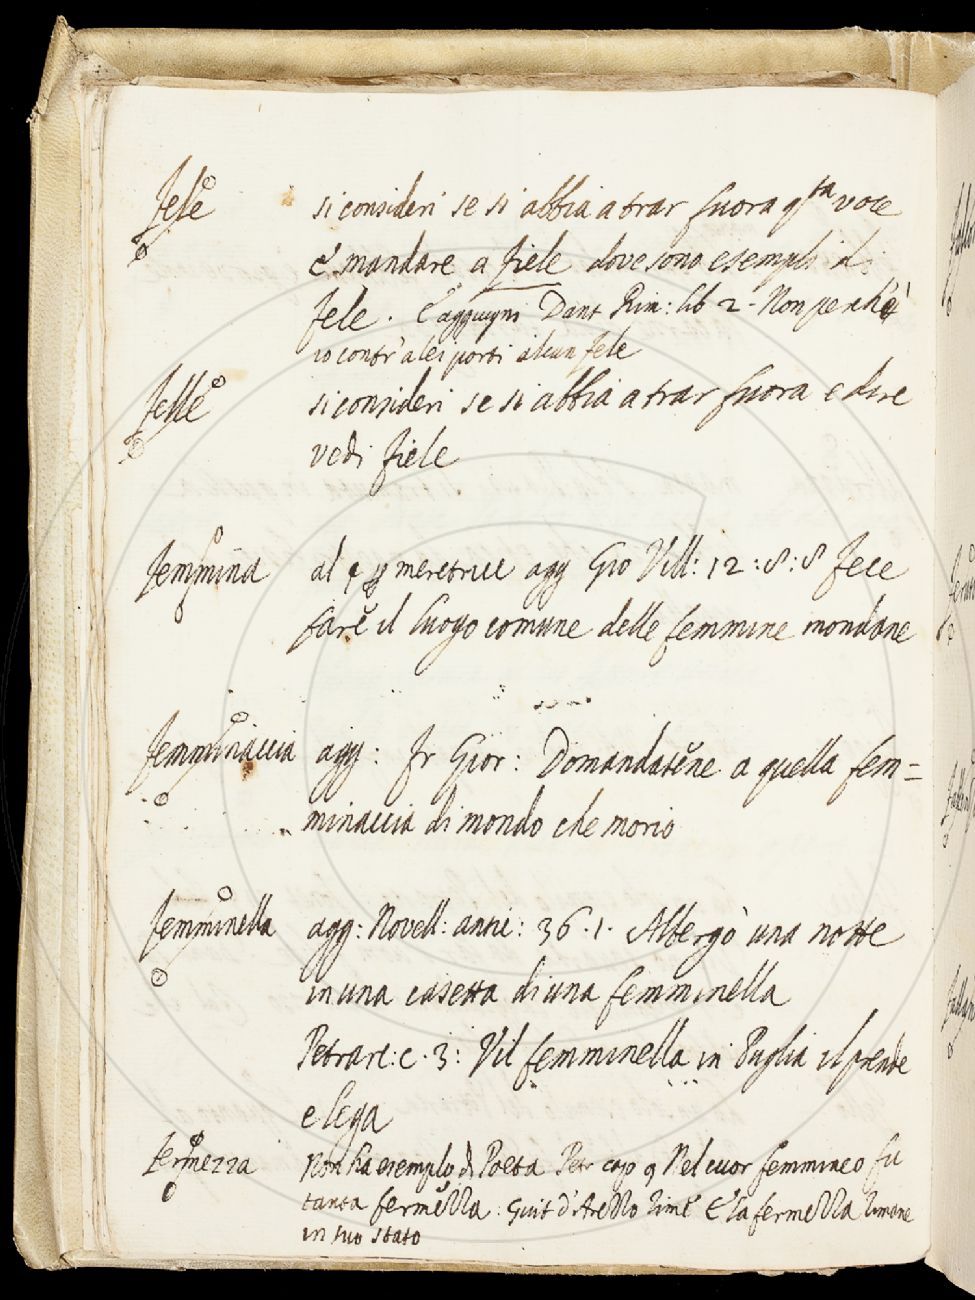 Fele si consideri se si abbia a trar fuora qsta voce
e mandare a fiele dove sono esempli di
fele. E aggiugni Dant Rim: lib 2 - Non perch'è
io contr'a lei porti alcun fele
Felle si consideri se si abbia a trar fuora e dire
vedi fiele
Femmina al § p meretrice agg Gio Vill: 12:8:8 Fece
fare il luogo comune delle femmine mondane
Femminaccia agg: Fr Gior: Domandatene a quella fem=
minaccia di mondo che morio
Femminella agg: Novell: antic: 36.1. Albergò una notte
in una casetta di una femminella
Petrarc: c. 3: Vil femminella in Puglia il prende
e lega
Fermezza Non ha esemplo di Poeta Petr capo 9 Nel cuor femmineo fu
tanta fermezza. Guit d'Arezzo Rime E la fermezza rimane
in suo stato